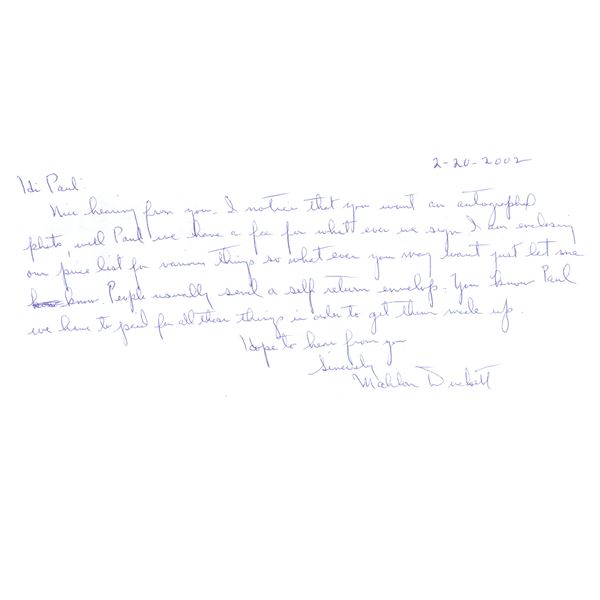 2-20-2002
Hi Paul:
Nice hearing from you. I notice that you want an autographed
photo, well Paul we have a fee for whatt ever we sign I am enclosing
our price list for various things so what ever you may want just let me
know. People usually send a self return envelop. You know Paul
we have to paid for all these things in order to get them made up.
Hope to hear from you
Sincerely
Mahlon Duckett